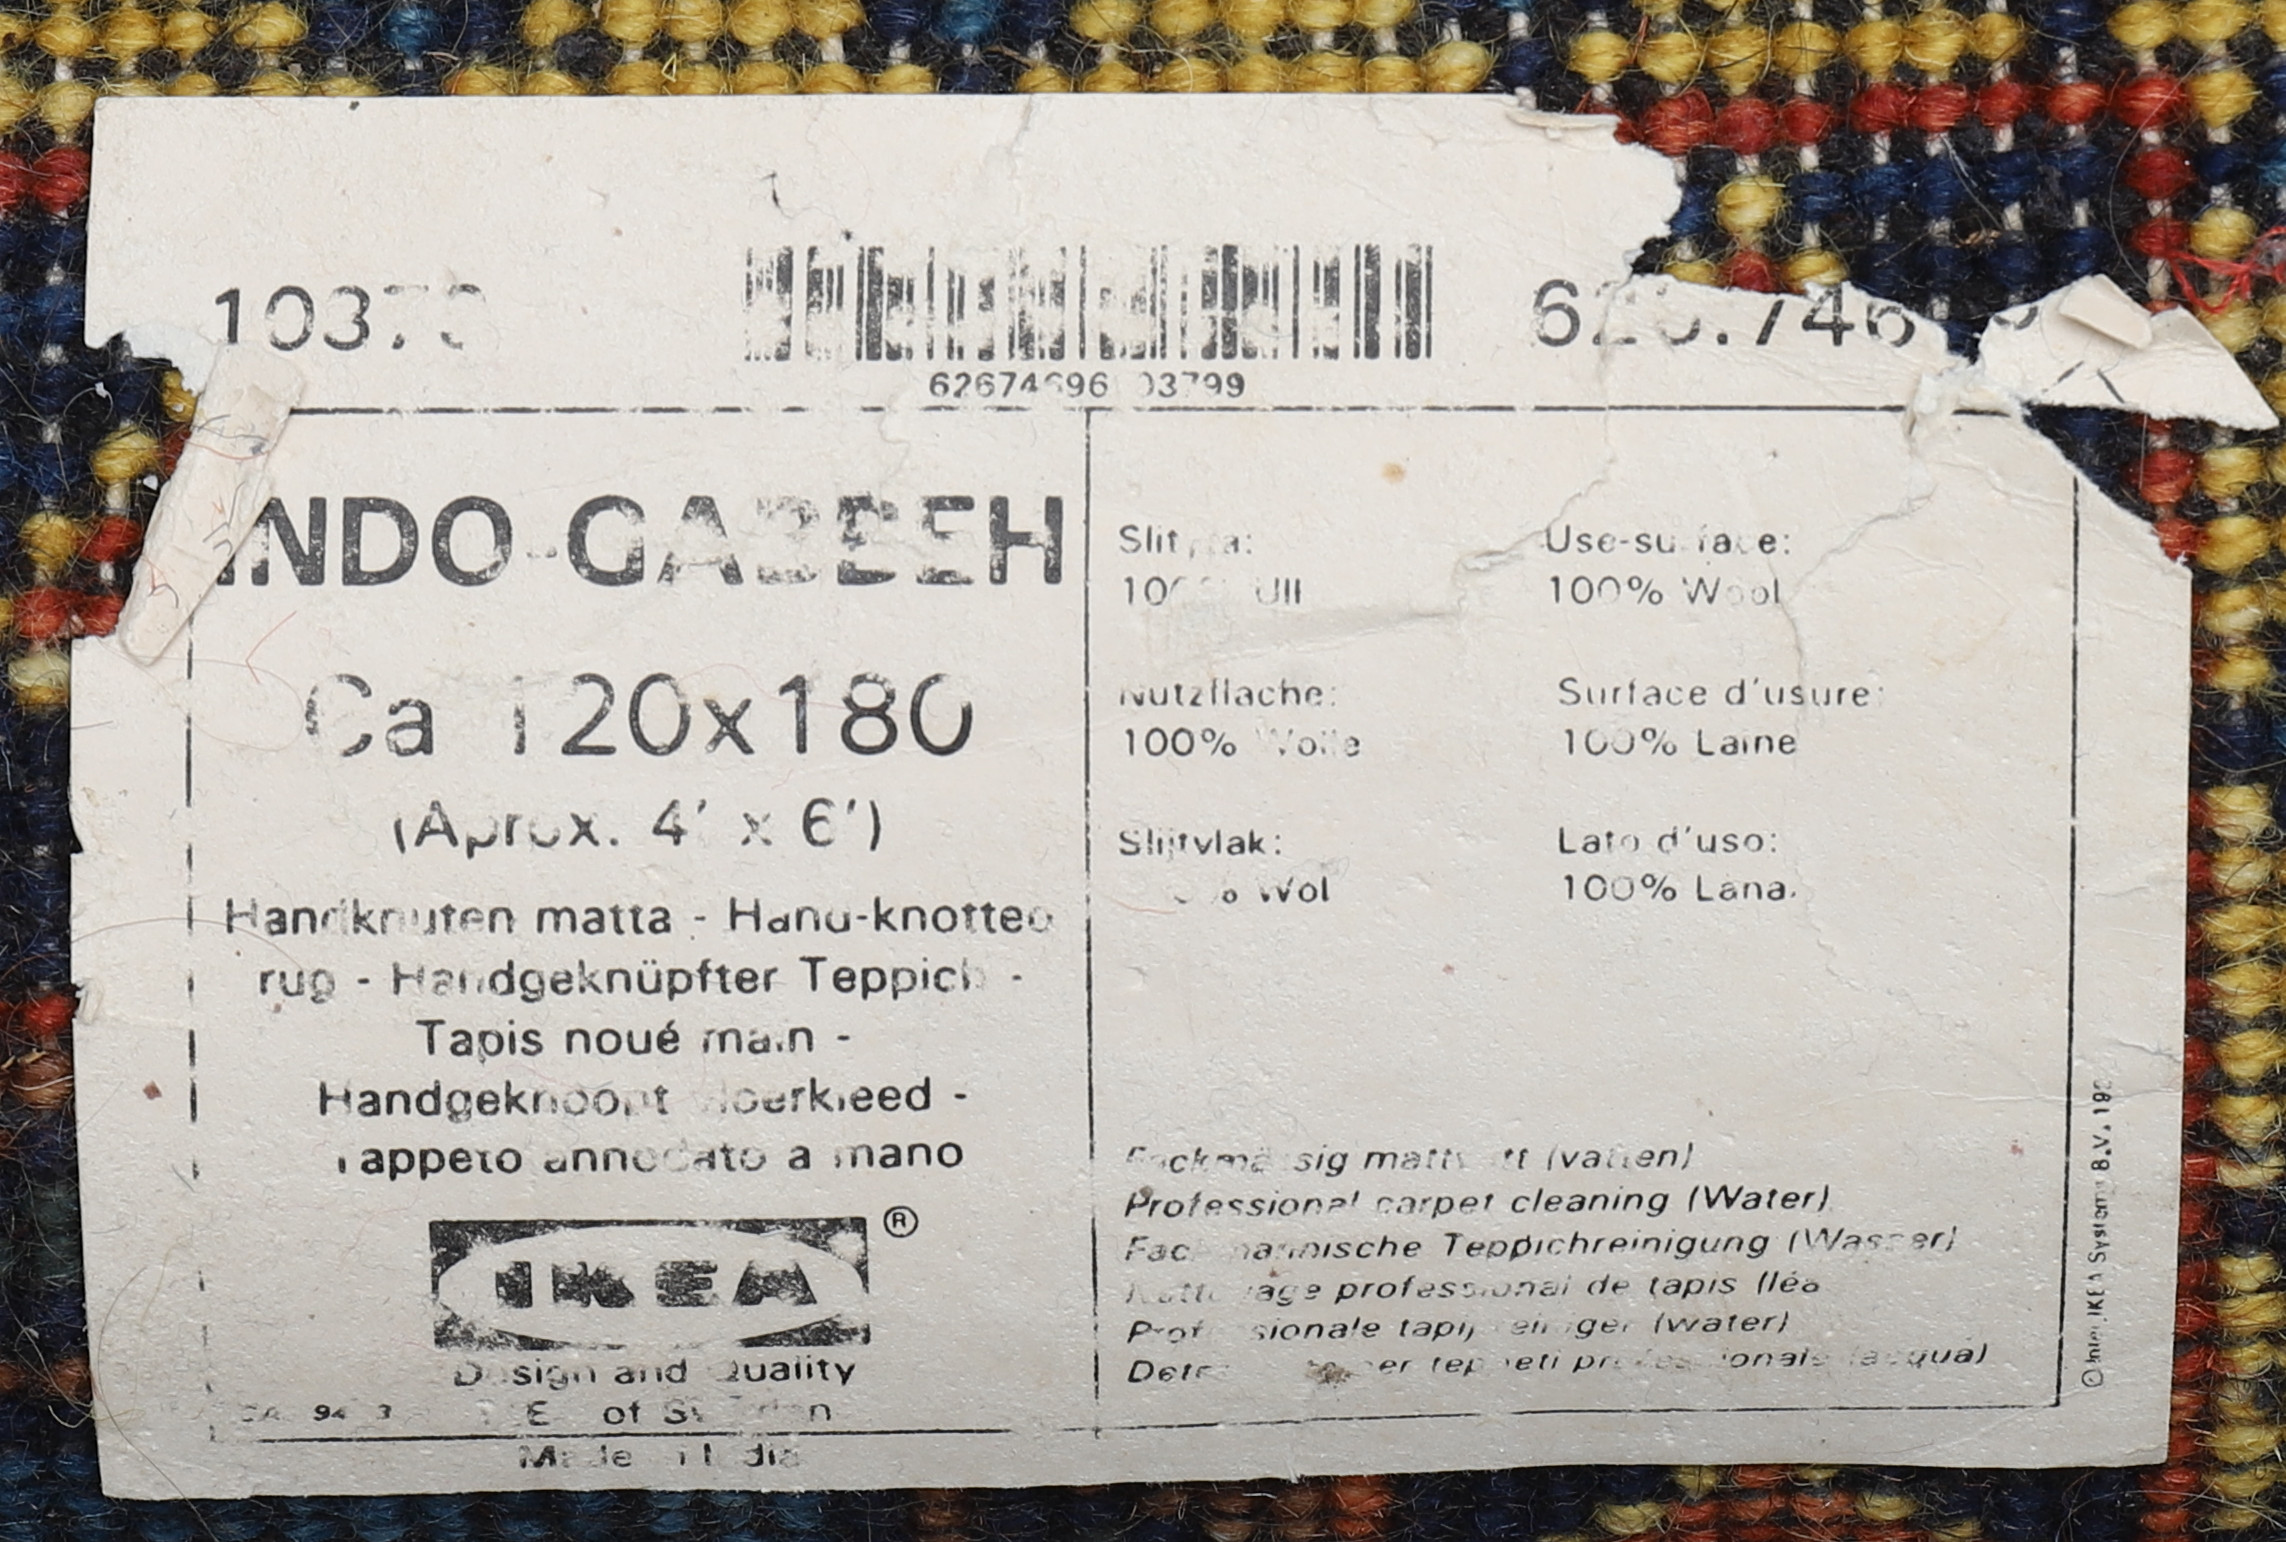 INDO-GABBEH
Ca 120x180
(Aprox. 4' x 6')
Handknuten matta - Hand-knotted
rug - Handgeknüpfter Teppich -
Tapis noué main -
Handgeknoopt vloerkleed -
Tappeto annodato a mano
IKEA ®
Design and Quality
IKEA of Sweden
Made in India
Slityta:
100% Ull
Use-surface:
100% Wool
Nutzfläche:
100% Wolle
Surface d'usure:
100% Laine
Slijtvlak:
100% Wol
Lato d'uso:
100% Lana.
Fackmässig mattvätt (vatten)
Professional carpet cleaning (Water)
Fachmännische Teppichreinigung (Wasser)
Nettoyage professional de tapis
Professionale tapijtreiniger (water)
per teppeti professionale (acqua)
© Inter IKEA Systems B.V.